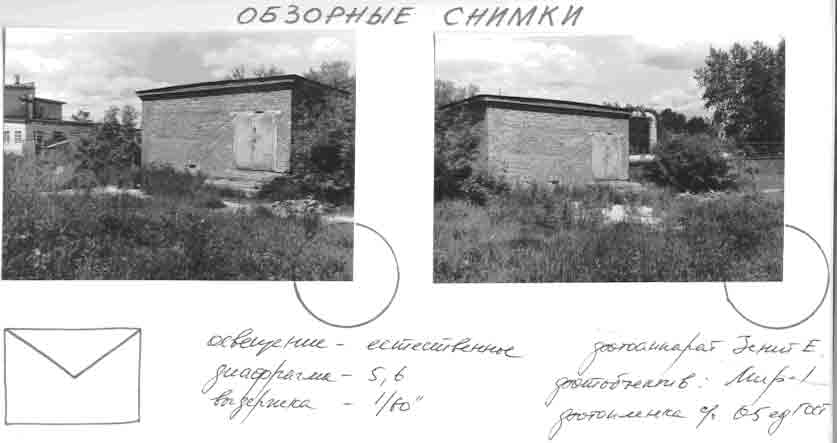 ОБЗОРНЫЕ СНИМКИ
освещение - естественное
диафрагма - 5,6
выдержка - 1/60"
фотоаппарат Зенит Е
фотообъектив: Мир-1
фотопленка 65 ед ГОСТ